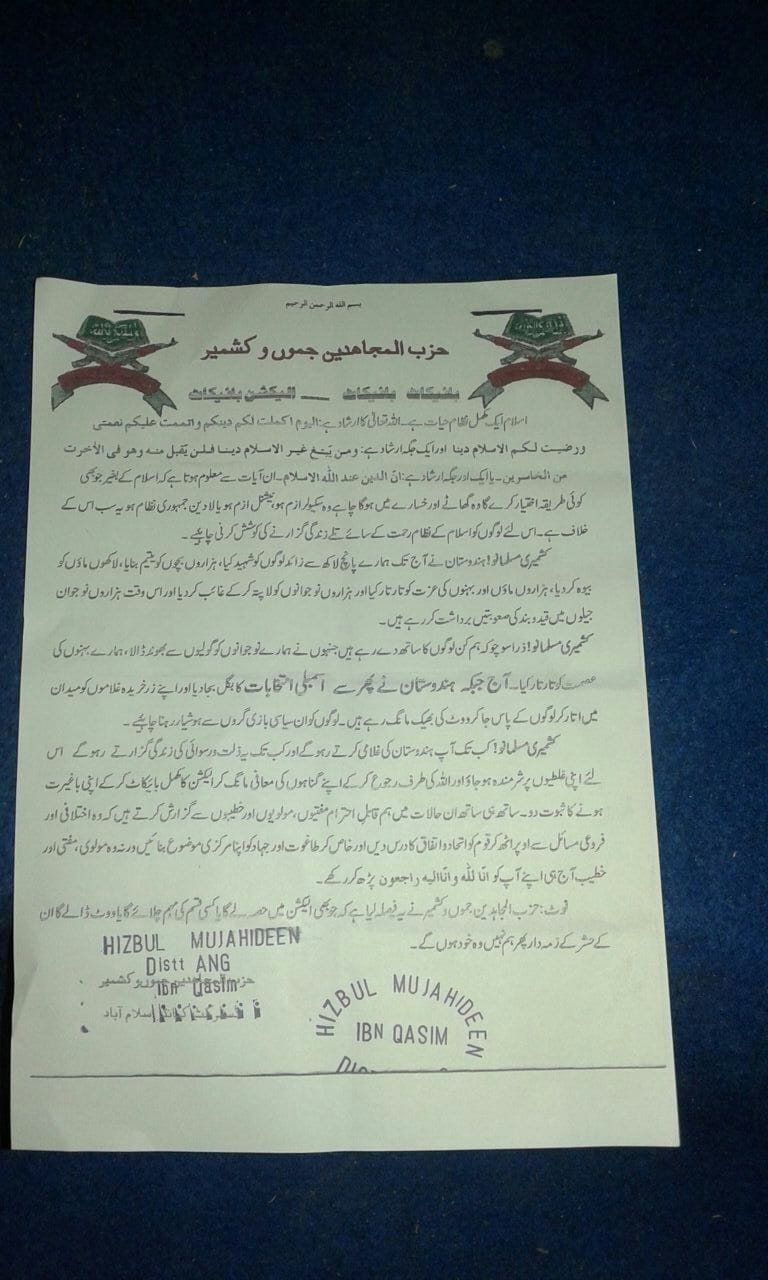 بسم الله الرحمن الرحيم
حزب المجاهدین جموں و کشمیر
بائیکاٹ بائیکاٹ __ الیکشن بائیکاٹ
اسلام ایک مکمل نظام حیات ہے۔ اللہ تعالیٰ کا ارشاد ہے: الیوم اکملت لکم دینکم و اتممت علیکم نعمتی
و رضیت لکم الاسلام دینا اور ایک جگہ ارشاد ہے: ومن یبتغ غیر الاسلام دینا فلن یُقبل منه وهو فی الآخرت
من الخاسرین۔ یا ایک اور جگہ ارشاد ہے: انّ الدین عند اللّٰہ الاسلام۔ ان آیات سے معلوم ہوتا ہے کہ اسلام کے بغیر جو بھی
کوئی طریقہ اختیار کرے گا وہ گھاٹے اور خسارے میں ہوگا چاہے وہ سیکولرازم ہو، نیشنل ازم ہو یا لادین جمہوری نظام ہو یہ سب اس کے
خلاف ہے۔ اس لئے لوگوں کو اسلام کے نظام رحمت کے سائے تلے زندگی گزارنے کی کوشش کرنی چاہیے۔
کشمیری مسلمانو! ہندوستان نے آج تک ہمارے پانچ لاکھ سے زائد لوگوں کو شہید کیا، ہزاروں بچوں کو یتیم بنایا، لاکھوں ماؤں کو
بیوہ کردیا، ہزاروں ماؤں اور بہنوں کی عزت کو تار تار کیا اور ہزاروں نوجوانوں کو لاپتہ کر کے غائب کردیا اور اس وقت ہزاروں نوجوان
جیلوں میں قید و بند کی صعوبتیں برداشت کررہے ہیں۔
کشمیری مسلمانو! ذرا سوچو کہ ہم کن لوگوں کا ساتھ دے رہے ہیں جنہوں نے ہمارے نوجوانوں کو گولیوں سے بھوند ڈالا، ہمارے بہنوں کی
عصمت کو تار تار کیا۔ آج جبکہ ہندوستان نے پھر سے اسمبلی انتخابات کا بگل بجادیا اور اپنے زرخریدہ غلاموں کو میدان
میں اتار کر لوگوں کے پاس جا کر ووٹ کی بھیک مانگ رہے ہیں۔ لوگوں کو ان سیاسی بازی گروں سے ہوشیار رہنا چاہیے۔
کشمیری مسلمانو! کب تک آپ ہندوستان کی غلامی کرتے رہوگے اور کب تک یہ ذلت و رسوائی کی زندگی گزارتے رہوگے اس
لئے اپنی غلطیوں پر شرمندہ ہوجاؤ اور اللہ کی طرف رجوع کر کے اپنے گناہوں کی معافی مانگ کر الیکشن کا مکمل بائیکاٹ کر کے اپنی باغیرت
ہونے کا ثبوت دو۔ ساتھ ہی ساتھ ان حالات میں ہم قابل احترام مفتیوں، مولویوں اور خطیبوں سے گزارش کرتے ہیں کہ وہ اختلافی اور
فروعی مسائل سے اوپر اٹھ کر قوم کو اتحاد و اتفاق کا درس دیں اور خاص کر طاغوت اور جہاد کو اپنا مرکزی موضوع بنائیں ورنہ وہ مولوی، مفتی اور
خطیب آج ہی اپنے آپ کو انّا للّٰہ و انّا الیہ راجعون پڑھ کر رکھے۔
نوٹ: حزب المجاہدین جموں و کشمیر نے یہ فیصلہ لیا ہے کہ جو بھی الیکشن میں حصہ لے گا یا کسی قسم کی مہم چلائے گا یا ووٹ ڈالے گا ان
کے حشر کے زمہ دار پھر ہم نہیں وہ خود ہوں گے۔
HIZBUL MUJAHIDEEN
Distt ANG
Ibn Qasim
حزب المجاهدین جموں و کشمیر
اسلام آباد
HIZBUL MUJAHIDEEN
IBN QASIM